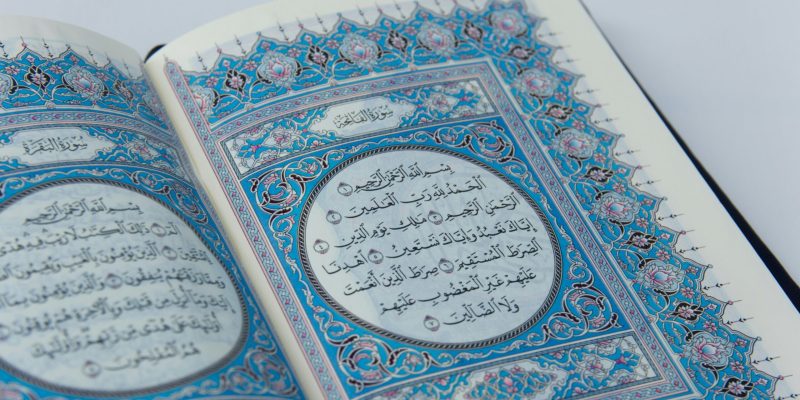 سُورَةُ الفَاتِحَةِ
بِسْمِ ٱللَّهِ ٱلرَّحْمَٰنِ ٱلرَّحِيمِ ١
ٱلْحَمْدُ لِلَّهِ رَبِّ ٱلْعَٰلَمِينَ ٢
ٱلرَّحْمَٰنِ ٱلرَّحِيمِ ٣ مَٰلِكِ يَوْمِ ٱلدِّينِ ٤
إِيَّاكَ نَعْبُدُ وَإِيَّاكَ نَسْتَعِينُ ٥ ٱهْدِنَا
ٱلصِّرَٰطَ ٱلْمُسْتَقِيمَ ٦ صِرَٰطَ ٱلَّذِينَ أَنْعَمْتَ
عَلَيْهِمْ غَيْرِ ٱلْمَغْضُوبِ عَلَيْهِمْ
وَلَا ٱلضَّآلِّينَ ٧
سُورَةُ البَقَرَةِ
بِسْمِ ٱللَّهِ ٱلرَّحْمَٰنِ ٱلرَّحِيمِ
الٓمٓ ١ ذَٰلِكَ ٱلْكِتَٰبُ لَا رَيْبَ فِيهِ
ٱلَّذِينَ يُؤْمِنُونَ بِٱلْغَيْبِ وَيُقِيمُونَ
وَمِمَّا رَزَقْنَٰهُمْ يُنفِقُونَ ٣ وَٱلَّذِينَ يُؤْمِنُونَ بِمَآ
وَمَآ أُنزِلَ مِن قَبْلِكَ وَبِٱلْءَاخِرَةِ هُمْ يُوقِنُونَ
أُو۟لَٰٓئِكَ عَلَىٰ هُدًى مِّن رَّبِّهِمْ وَأُو۟لَٰٓئِكَ
هُمُ ٱلْمُفْلِحُونَ ٥